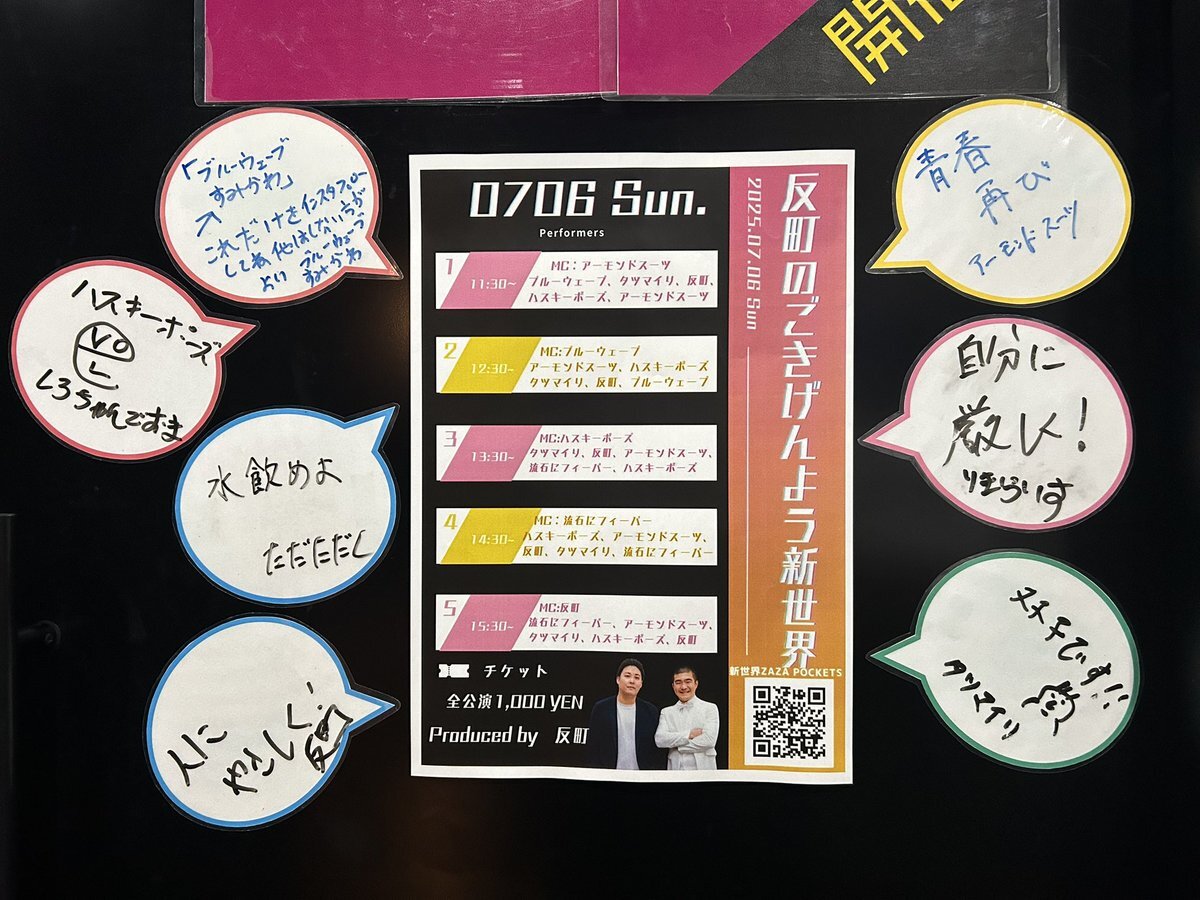 開催
「ブルーウェーブ
すみかわ」
これだけをインスタフォロー
してね 他はしない方が
よい ブルーウェーブ
すみかわ
ハスキーポーズ
しろちゃんですま
水飲めよ
ただただし
人に
やさしく!
反町
0706 Sun.
Performers
1
11:30~
MC：アーモンドスーツ
ブルーウェーブ、タツマイリ、反町、
ハスキーポーズ、アーモンドスーツ
2
12:30~
MC:ブルーウェーブ
アーモンドスーツ、ハスキーポーズ
タツマイリ、反町、ブルーウェーブ
3
13:30~
MC:ハスキーポーズ
タツマイリ、反町、アーモンドスーツ、
流石にフィーバー、ハスキーポーズ
4
14:30~
MC：流石にフィーバー
ハスキーポーズ、アーモンドスーツ、
反町、タツマイリ、流石にフィーバー
5
15:30~
MC:反町
流石にフィーバー、アーモンドスーツ、
タツマイリ、ハスキーポーズ、反町
チケット
全公演1,000 YEN
Produced by 反町
反町のごきげんよう新世界
2025.07.06 Sun
新世界ZAZA POCKETS
青春
再び
アーモンドスーツ
自分に
厳しく!
りきらいす
ヌキチです!!
タツマイリ